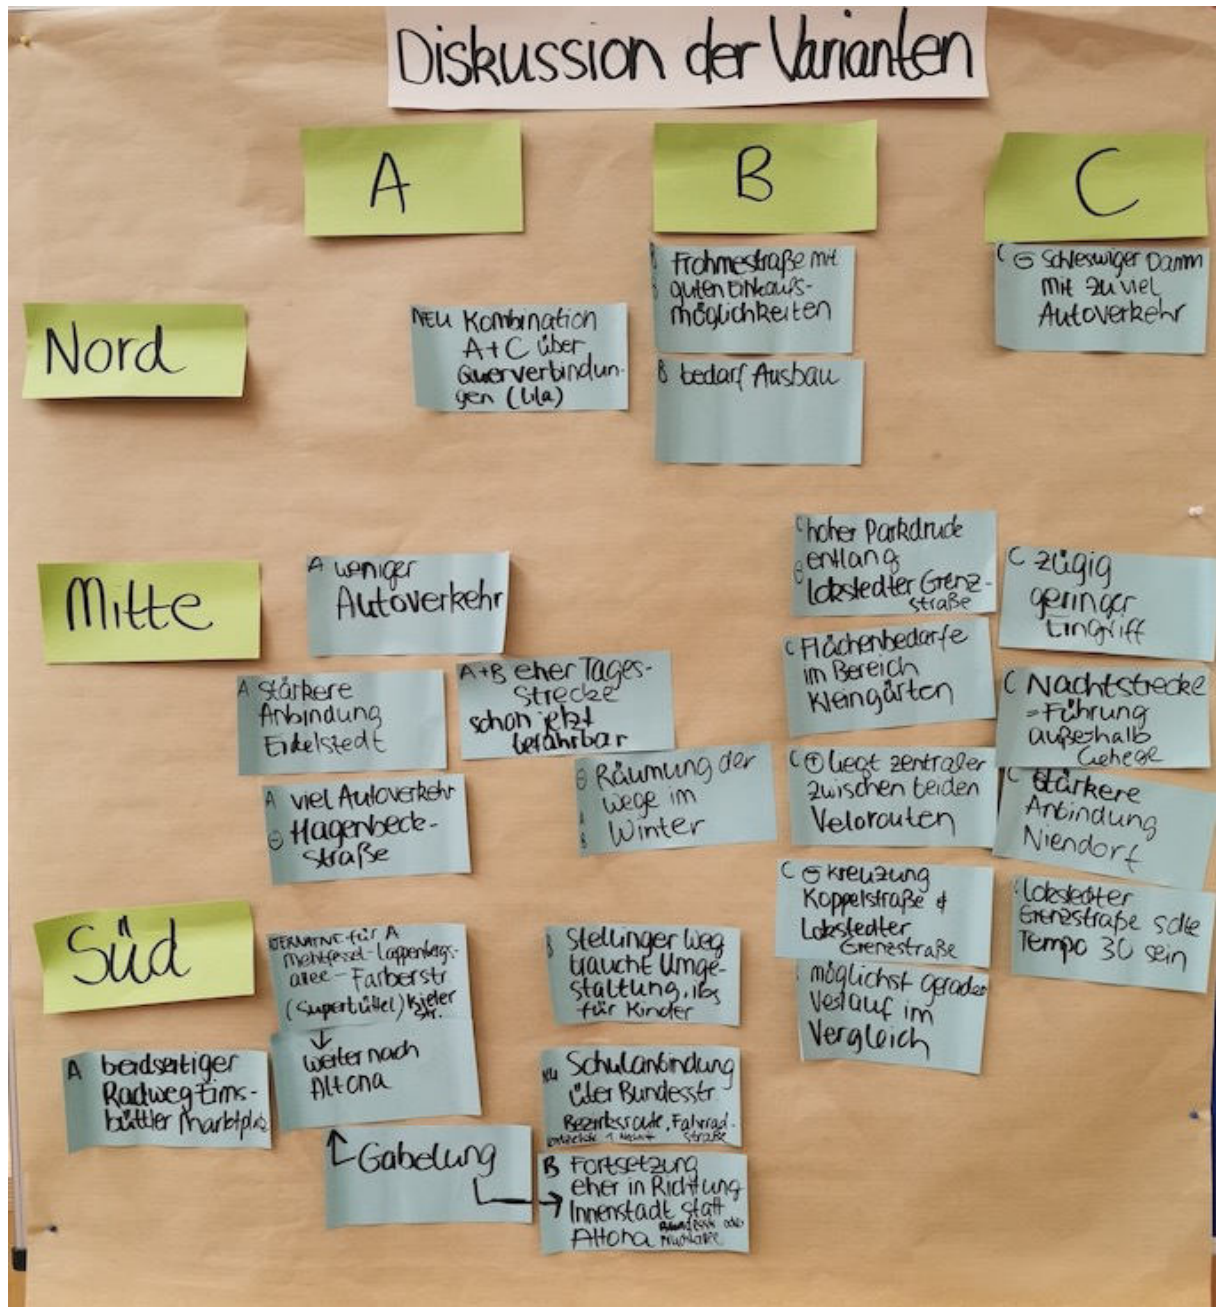 Diskussion der Varianten
A
B
C
Nord
NEU Kombination
A+C über
Querverbindun-
gen (lila)
B Frohmestraße mit
guten Einkaufs-
möglichkeiten
B bedarf Ausbau
C ⊖ Schleswiger Damm
mit zu viel
Autoverkehr
Mitte
A weniger
Autoverkehr
A stärkere
Anbindung
Eidelstedt
A+B eher Tages-
strecke
schon jetzt
befahrbar
A viel Autoverkehr
⊖ Hagenbeck-
straße
⊖ Räumung der
A Wege im
B Winter
C hoher Parkdruck
⊖ entlang
Lokstedter Grenz-
straße
C Flächenbedarfe
im Bereich
Kleingärten
C ⊕ liegt zentraler
zwischen beiden
Velorouten
C ⊖ Kreuzung
Koppelstraße &
Lokstedter
Grenzstraße
möglichst gerader
Verlauf im
Vergleich
C zügig
geringer
Eingriff
C Nachtstrecke
= Führung
außerhalb
Gehege
C stärkere
Anbindung
Niendorf
Lokstedter
Grenzstraße sollte
Tempo 30 sein
Süd
A beidseitiger
Radweg Eims-
büttler Marktplatz
für A
-Lappenbergs-
allee - Farberstr
(Superbüttel) Kieler
Str.
↓
weiter nach
Altona
Gabelung
B Stellinger Weg
braucht Umge-
staltung, ibs
für Kinder
NEU Schulanbindung
über Bundesstr.
Bezirksroute, Fahrrad-
straße
B Fortsetzung
eher in Richtung
Innenstadt statt
Altona